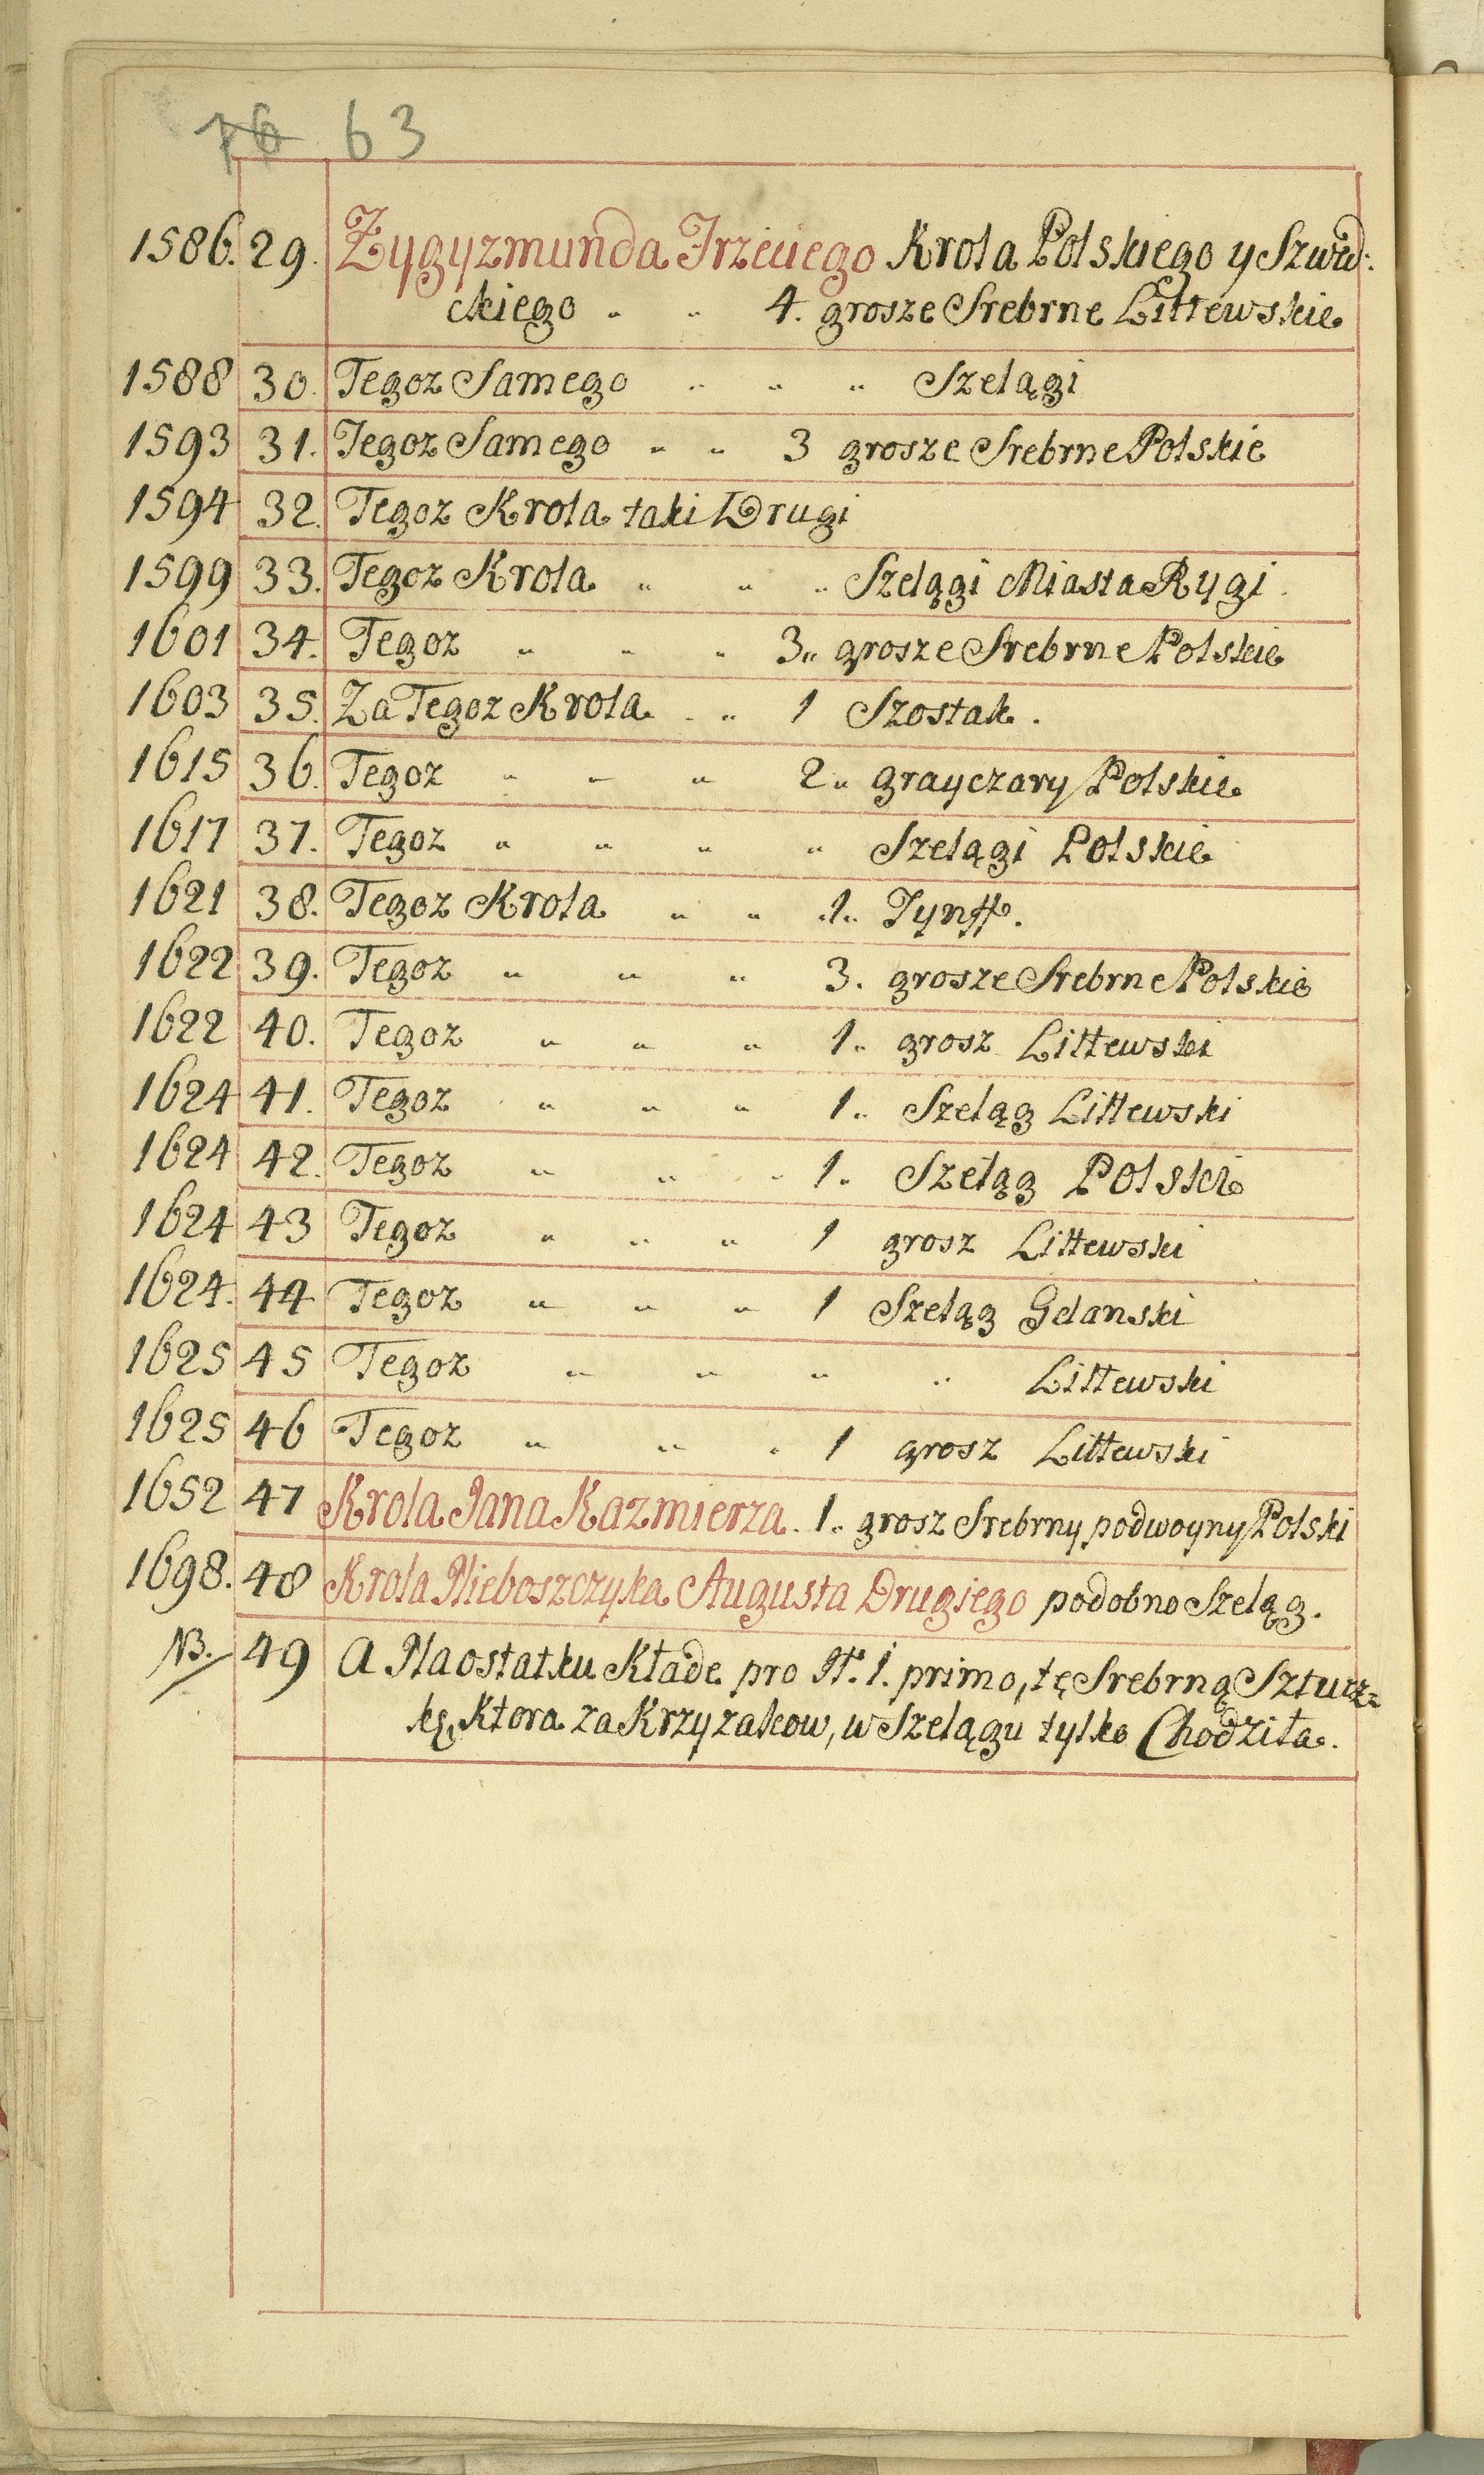 76 63
1586. 29. Zygyzmunda Trzeciego Krola Polskiego y Szwed:
ckiego " " 4. grosze Srebrne Littewskie
1588 30. Tegoz Samego " " " Szelągi
1593 31. Tegoz Samego " " 3 grosze Srebrne Polskie
1594 32. Tegoz Krola taki Drugi
1599 33. Tegoz Krola " " " Szelągi Miasta Rygi
1601 34. Tegoz " " " 3" grosze Srebrne Polskie
1603 35. Za Tegoz Krola " " 1 Szostak.
1615 36. Tegoz " " " 2" grayczary Polskie
1617 37. Tegoz " " " " Szelągi Polskie
1621 38. Tegoz Krola " " .1" Tynff.
1622 39. Tegoz " " " 3. grosze Srebrne Polskie
1622 40. Tegoz " " " 1" grosz Littewski
1624 41. Tegoz " " " 1" Szeląg Littewski
1624 42. Tegoz " " " 1" Szeląg Polski
1624 43 Tegoz " " " 1 grosz Littewski
1624. 44 Tegoz " " " 1 Szeląg Gdanski
1625 45 Tegoz " " " " Littewski
1625 46 Tegoz " " " 1 grosz Littewski
1652 47 Krola Jana Kazmierza. 1" grosz Srebrny podwoyny Polski
1698. 48 Krola Nieboszczyka Augusta Drugiego podobno Szeląg.
NB. 49 A Naostatku Kłade pro N: 1. primo, tę Srebrną Sztucz=
kę, Ktora za Krzyzakow, w Szelągu tylko Chodziła.